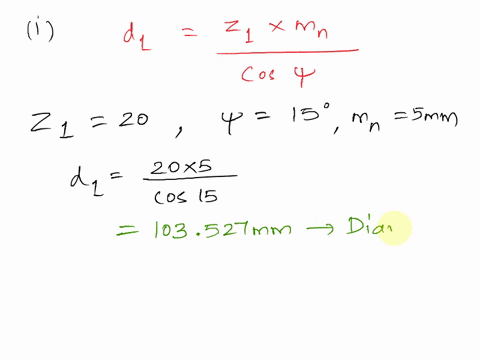 (i) d₁ = Z₁ × mₙ / cos ψ
Z₁ = 20 , ψ = 15° , mₙ = 5mm
d₁ = 20×5 / cos 15
= 103.527mm → Diar